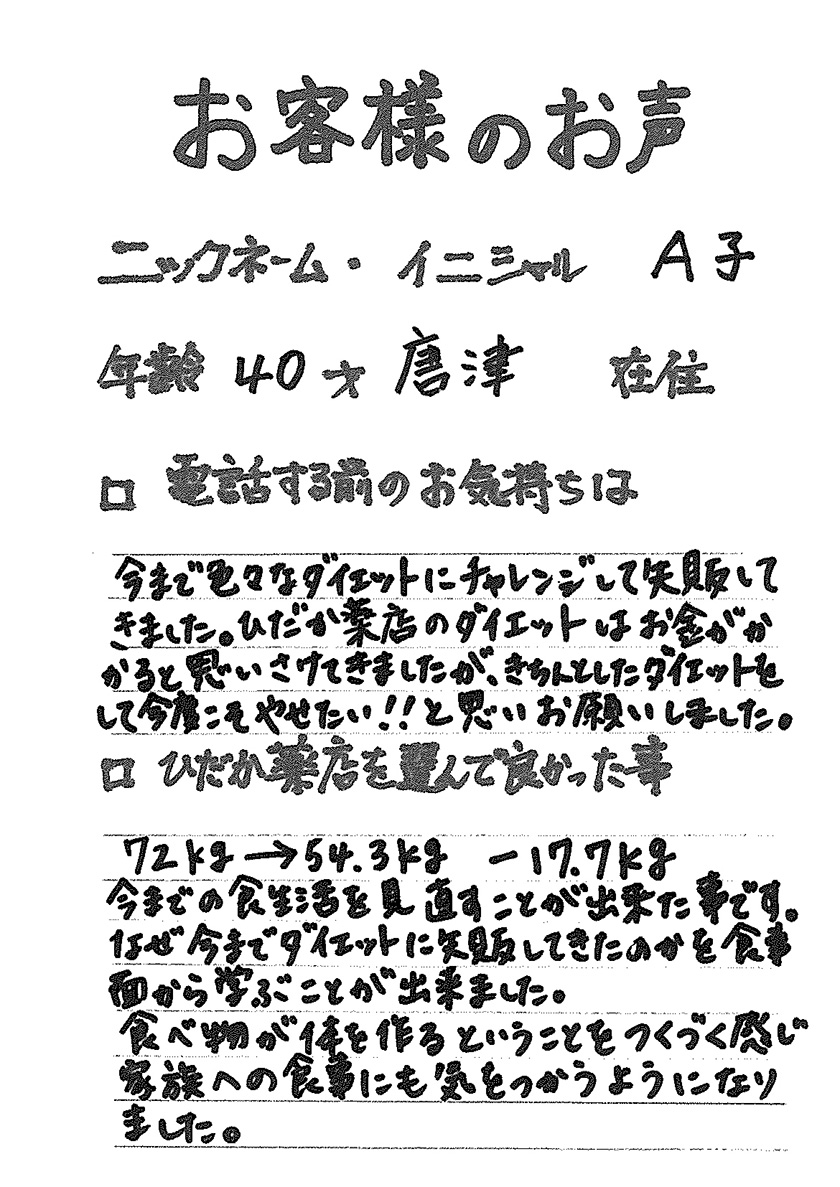 お客様のお声
ニックネーム・イニシャル A子
年齢 40才 唐津 在住
□ 電話する前のお気持ちは
今まで色々なダイエットにチャレンジして失敗して
きました。ひだか薬店のダイエットはお金がか
かると思いさけてきましたが、きちんとしたダイエットを
して今度こそやせたい!!と思いお願いしました。
□ ひだか薬店を選んで良かった事
72kg→54.3kg −17.7kg
今までの食生活を見直すことが出来た事です。
なぜ今までダイエットに失敗してきたのかを食事
面から学ぶことが出来ました。
食べ物が体を作るということをつくづく感じ
家族への食事にも気をつかうようになり
ました。